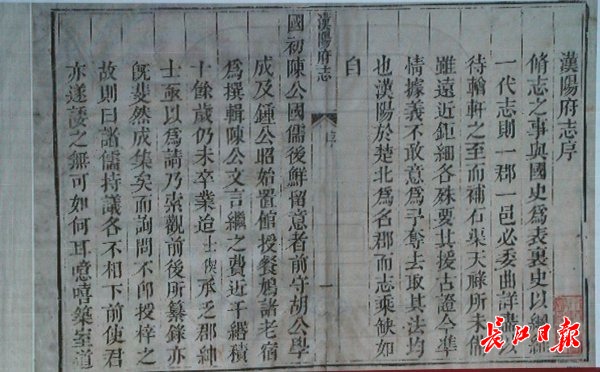 漢陽府志序
脩志之事與國史爲表裏史以網維
一代志則一郡一邑必委曲詳備以
待輶軒之至而補石渠天祿所未備
雖遠近鉅細各殊要其援古證今準
情據義不敢意爲予奪去取其法均
也漢陽於楚北爲名郡而志乘缺如
自
漢陽府志
序
一
國初陳公國儒後鮮留意者前守胡公學
成及鍾公昭始置館授餐鳩諸老宿
爲撰輯陳公文言繼之費近千緡積
十餘歲仍未卒業迨士俊承乏郡紳
士亟以爲請乃索觀前後所纂錄亦
旣斐然成集矣而詢問不卽授梓之
故則曰諸儒持議各不相下前使君
亦遂諉之無可如何耳噫嘻築室道
長江日报